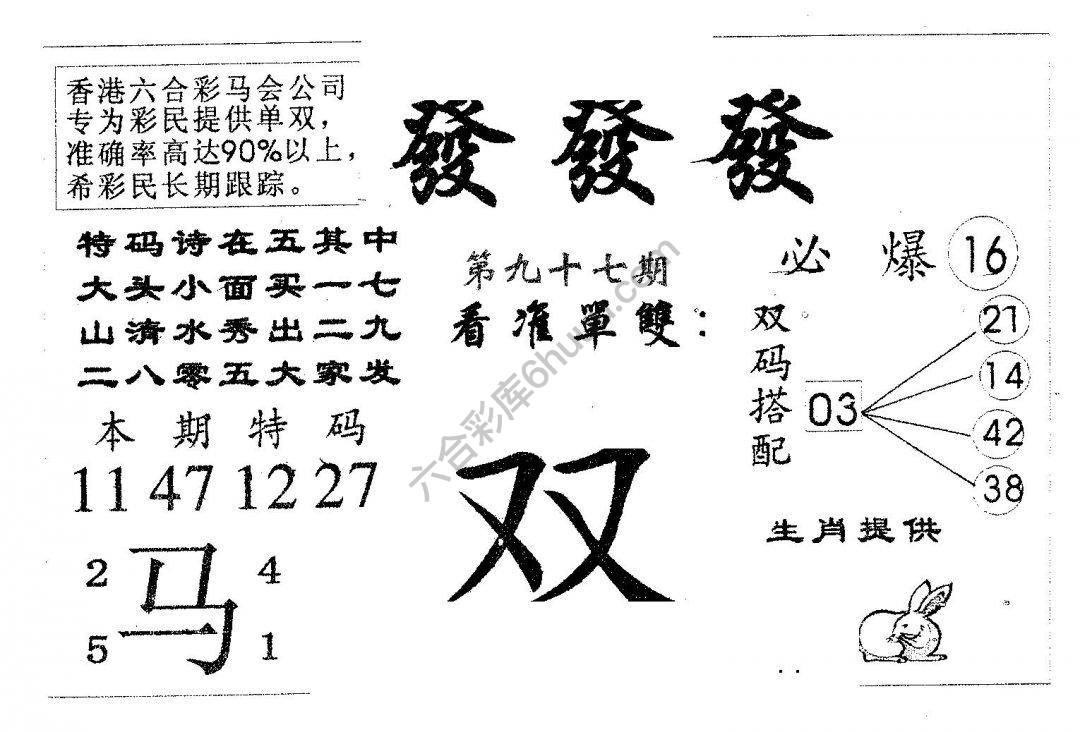 香港六合彩马会公司
专为彩民提供单双，
准确率高达90%以上，
希彩民长期跟踪。
發發發
特码诗在五其中
大头小面买一七
山清水秀出二九
二八零五大家发
第九十七期
看准單雙：
双
必爆16
双码搭配
03
21
14
42
38
本期特码
11 47 12 27
马
2 4
5 1
生肖提供
六合彩库6huw.com